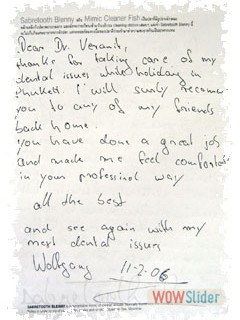 Sabretooth Blenny หรือ Mimic Cleaner Fish
Dear Dr. Veranit,
thanks for taking care of my
dental issues while holiday in
Phukett. I will surely recomm
you to any of my friends
back home.
you have done a great job
and made me feel comfortab
in your professional way
all the best
and see again with my
next dental issues
Wolfgang 11-2-06
SABRETOOTH BLENNY
WOWSlider